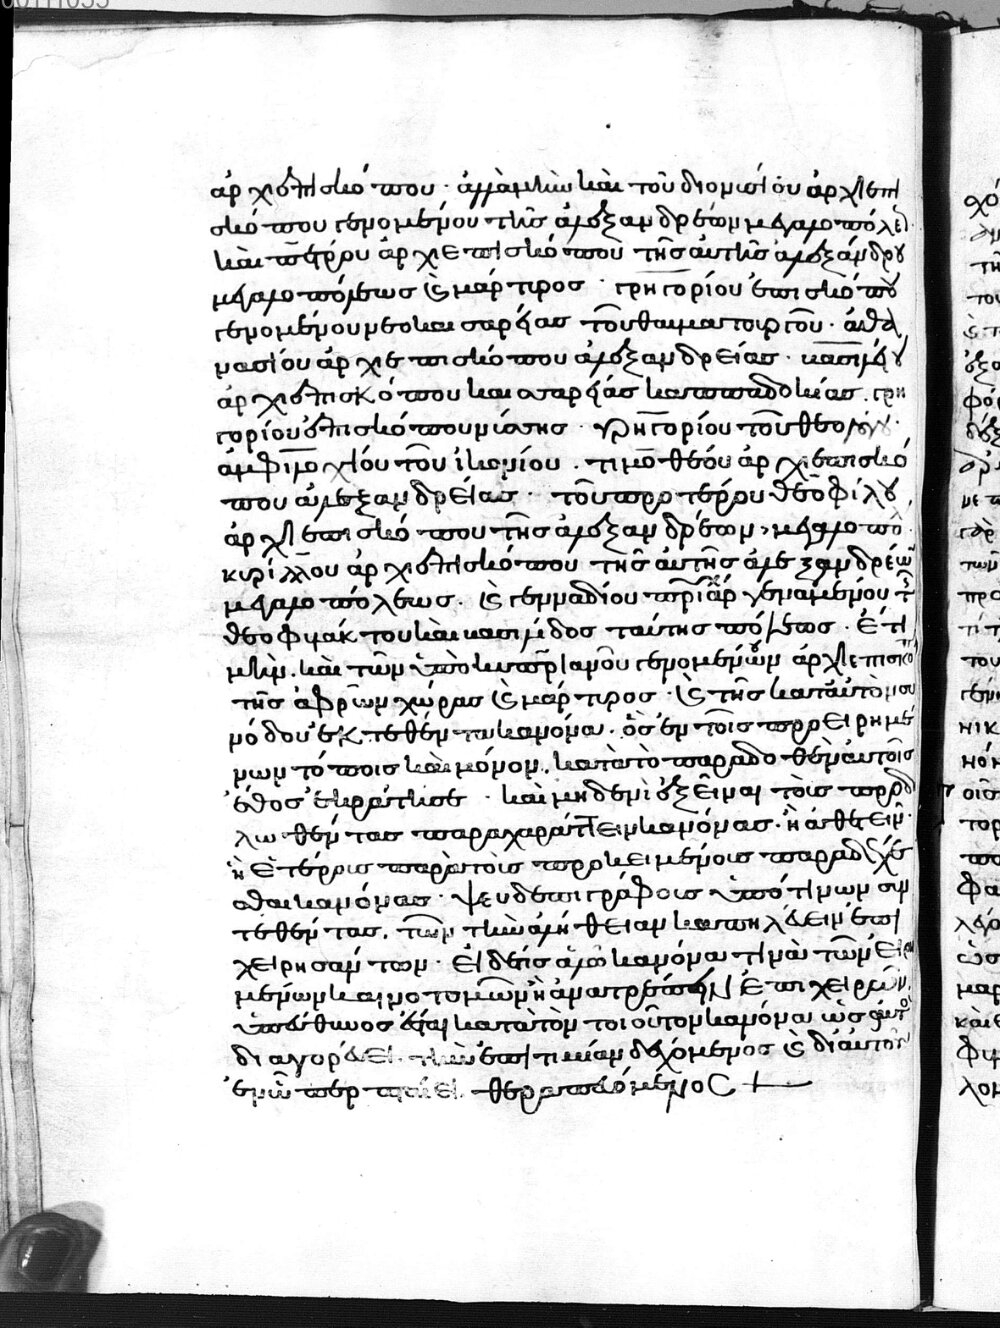 ἀρχιεπισκόπου· ἀλλὰ μὴν καὶ τοῦ διονυσίου ἀρχιεπι
σκόπου γενομένου τῆς ἀλεξανδρέων μεγαλοπόλε
καὶ πέτρου ἀρχιεπισκόπου τῆς αὐτῆς ἀλεξάνδρου
μεγαλοπόλεως καὶ μάρτυρος· γρηγορίου ἐπισκόπου
γενομένου νεοκαισαρείας τοῦ θαυματουργοῦ· ἀθα
νασίου ἀρχιεπισκόπου ἀλεξανδρείας· βασιλείου
ἀρχιεπισκόπου καισαρείας καππαδοκίας· γρη
γορίου ἐπισκόπου νύσσης· γρηγορίου τοῦ θεολόγου·
ἀμφιλοχίου τοῦ ἰκονίου· τιμοθέου ἀρχιεπισκό
που ἀλεξανδρείας· τοῦ προτέρου θεοφίλου
ἀρχιεπισκόπου τῆς ἀλεξανδρέων μεγαλοπό
κυρίλλου ἀρχιεπισκόπου τῆς αὐτῆς ἀλεξανδρέων
μεγαλοπόλεως· καὶ γενναδίου πριάρ γεναμένου τ
θεοφυλάκτου καὶ βασιλίδος ταύτης πόλεως· ἔτι
μὴν καὶ τὸν ὑπὸ κυπριανοῦ γενομένου ἀρχιεπισκόπ
τῆς ἄφρων χώρας καὶ μάρτυρος· καὶ τῆς κατ' αὐτὸν συ
νόδου ἐκτεθέντα κανόνα· ὃς ἐν τοῖς προειρημέ
νων τόποις καὶ μόνον, κατὰ τὸ παραδοθὲν αὐτοῖς
ἔθος ἐκράτησε· καὶ μηδενὶ ἐξεῖναι τοὺς προδ
λωθέντας παραχαράττειν κανόνας· ἢ ἀθετεῖν·
ἢ ἑτέρους παρὰ τοὺς προκειμένους παραδέχε
σθαι κανόνας· ψευδεπιγράφους ὑπό τινων συν
τεθέντας, τῶν τὴν ἀλήθειαν καπηλεύειν ἐπι
χειρησάντων· εἰ δέ τις ἁλῷ κανόνα τινὰ τῶν εἰρη
μένων καινοτομῶν ἢ ἀνατρέπειν ἐπιχειρῶν,
ὑπεύθυνος ἔσται κατὰ τὸν τοιοῦτον κανόνα ὡς αὐτὸ
διαγορεύει τὴν ἐπιτιμίαν δεχόμενος καὶ δι' αὐτοῦ
ἐν ᾧ περ πταίει θεραπευόμενος +